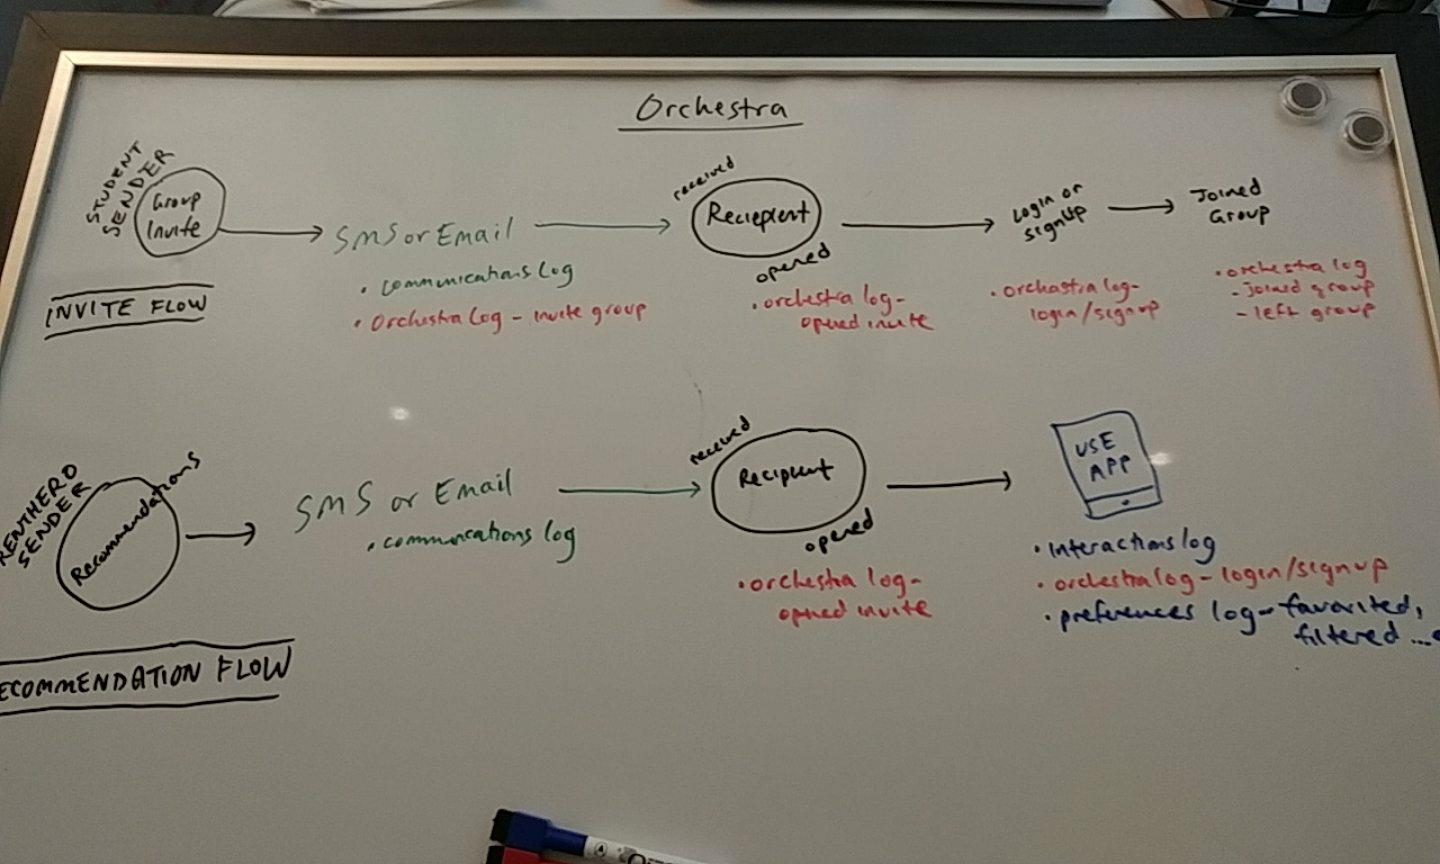 Orchestra
STUDENT
SENDER
Group
Invite
SMS or Email
• communications Log
• Orchestra Log - Invite group
received
Reciepient
opened
• orchestra log-
opened invite
Login or
signup
• orchastra log-
login/signup
Joined
Group
• orchestra log
- Joined group
- left group
INVITE FLOW
RENTHERO
SENDER
Recommendations
SMS or Email
• communcations log
received
Recipient
opened
• orchestra log-
opened invite
USE
APP
• Interactions log
• orchestra log - login/signup
• preferences log - favorited,
filtered ...
ECOMMENDATION FLOW